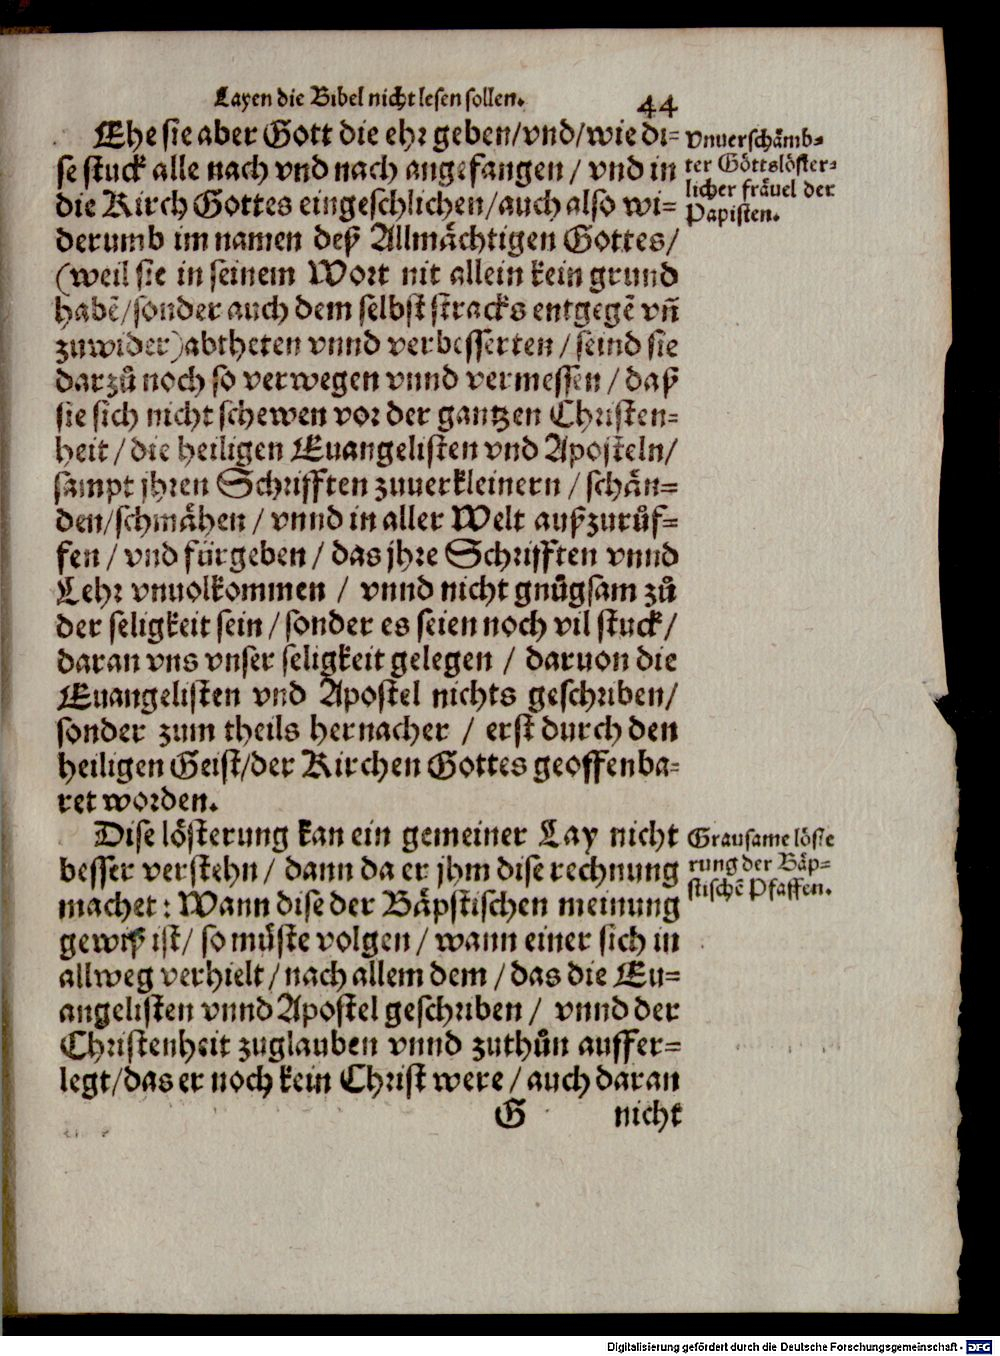 Layen die Bibel nicht lesen sollen.
44
Ehe sie aber Gott die ehr geben/vnd/wie di=
se stuck alle nach vnd nach angefangen / vnd in
die Kirch Gottes eingeschlichen/auch also wi=
derumb im namen deß Allmächtigen Gottes/
(weil sie in seinem Wort nit allein kein grund
habē/sonder auch dem selbst stracks entgegē vñ
zuwider)abtheten vnnd verbesserten / seind sie
darzů noch so verwegen vnnd vermessen / daß
sie sich nicht schewen vor der gantzen Christen=
heit / die heiligen Euangelisten vnd Aposteln/
sampt jhren Schrifften zuuerkleinern / schän=
den/schmähen / vnnd in aller Welt außzurůf=
fen / vnd fürgeben / das jhre Schrifften vnnd
Lehr vnuolkommen / vnnd nicht gnůgsam zů
der seligkeit sein / sonder es seien noch vil stuck/
daran vns vnser seligkeit gelegen / daruon die
Euangelisten vnd Apostel nichts geschriben/
sonder zum theils hernacher / erst durch den
heiligen Geist/der Kirchen Gottes geoffenba=
ret worden.
Vnuerschämb=
ter Gottslöster=
licher fräuel der
Papisten.
Dise lösterung kan ein gemeiner Lay nicht
besser verstehn / dann da er jhm dise rechnung
machet : Wann dise der Bäpstischen meinung
gewiß ist/ so müste volgen / wann einer sich in
allweg verhielt / nach allem dem / das die Eu=
angelisten vnnd Apostel geschriben / vnnd der
Christenheit zuglauben vnnd zuthůn auffer=
legt/das er noch kein Christ were / auch daran
Grausame löste
rung der Bäp=
stischē Pfaffen.
G
nicht
Digitalisierung gefördert durch die Deutsche Forschungsgemeinschaft - DFG